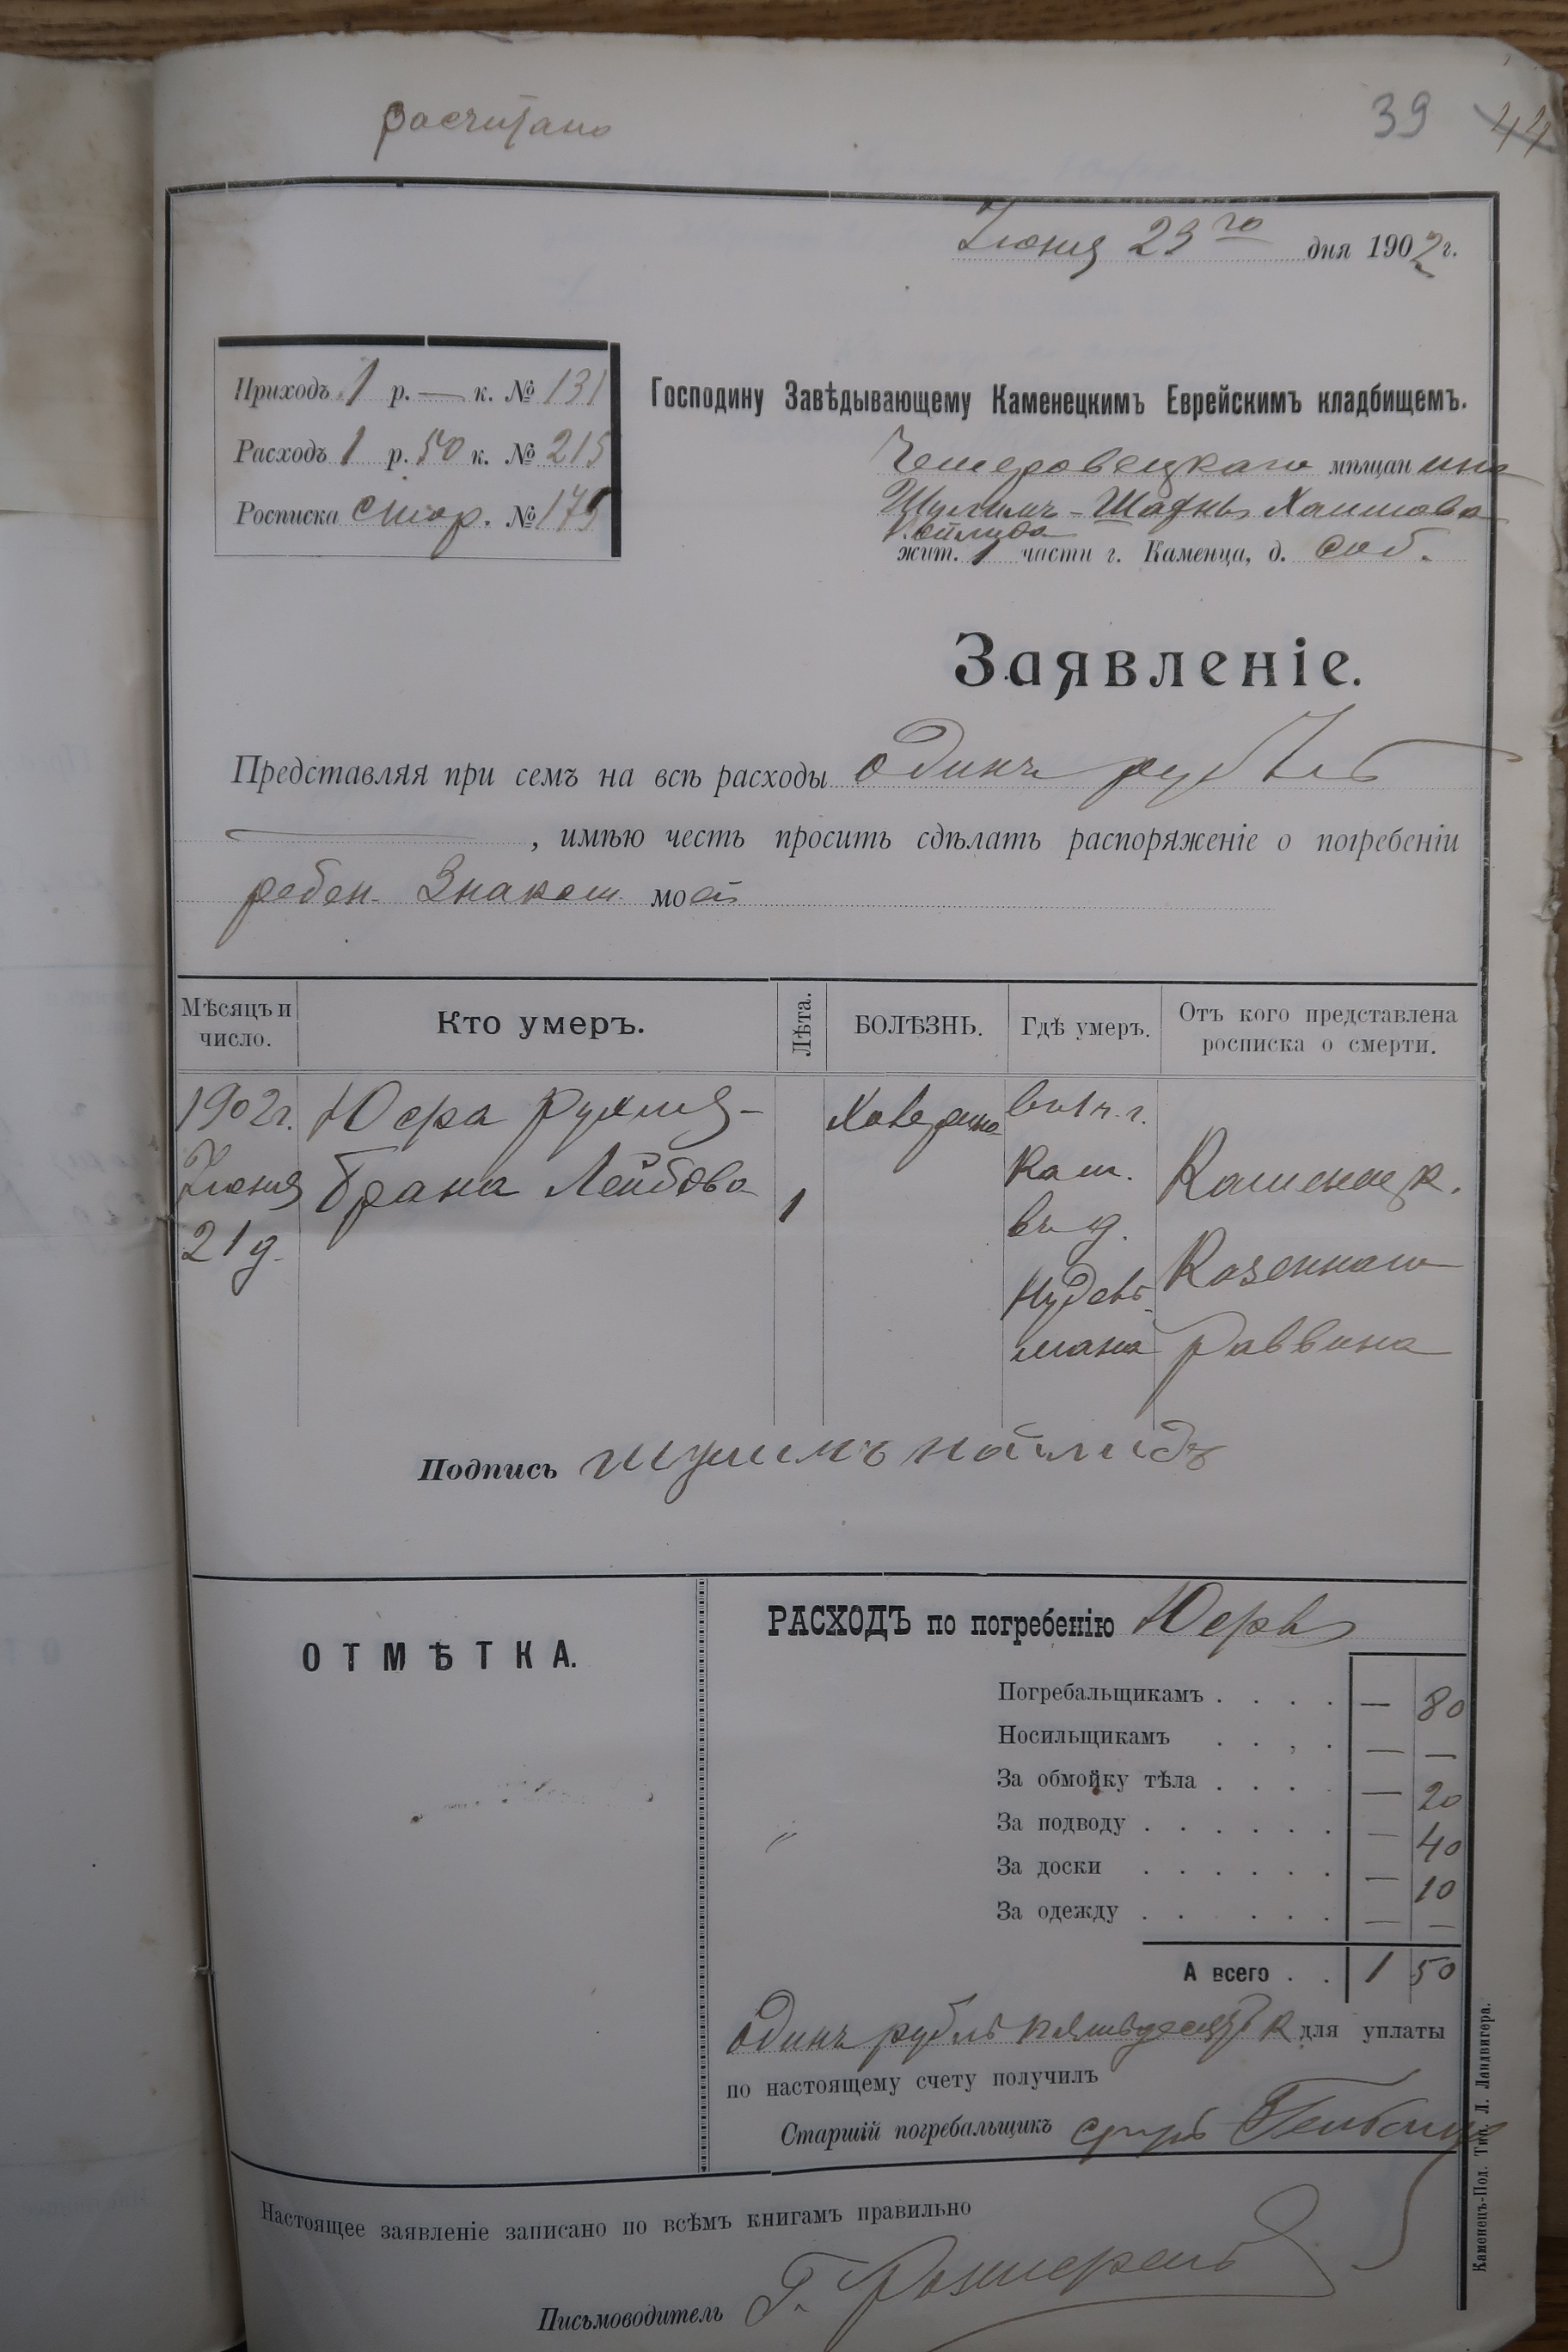 расчитано
39 44
Июня 23го дня 1902 г.
Приходъ 1 р. — к. № 131
Расходъ 1 р. 50 к. № 215
Росписка стор. № 175
Господину Завѣдывающему Каменецкимъ Еврейскимъ кладбищемъ.
Чемеровецкаго мѣщанина
Шулимъ-Шафнъ Хаимова
жит. 1 части г. Каменца, д. соб.
Заявленіе.
Представляя при семъ на всѣ расходы одинъ рубль
, имѣю честь просить сдѣлать распоряженіе о погребеніи
ребен. Знаком. моей
Мѣсяцъ и число. Кто умеръ. Лѣта. БОЛѢЗНЬ. Гдѣ умеръ. Отъ кого представлена росписка о смерти.
1902г. Юсра Рухля- въ 1 ч. г.
Июня Брана Лейбова 1 Кам. Каменецк.
21 д. въ д. Казеннаго
мана раввина
Подпись шулимъ
ОТМѢТКА.
РАСХОДЪ по погребенію Юсры
Погребальщикамъ . . . . — 80
Носильщикамъ . . , . — —
За обмойку тѣла . . . . — 20
За подводу . . . . . . — 40
За доски . . . . . . — 10
За одежду . . . . . . — —
А всего . . 1 50
одинъ рубль пятьдесятъ к для уплаты
по настоящему счету получилъ
Старшій погребальщикъ
Настоящее заявленіе записано по всѣмъ книгамъ правильно
Письмоводитель Г.
Каменецъ-Под. Тип. Л. Ландвигера.